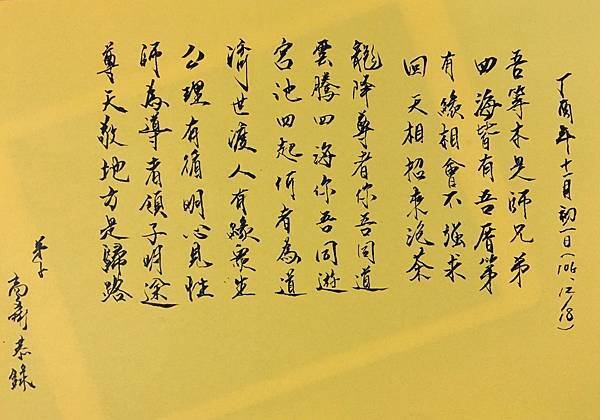 丁酉年十一月初一日(106.12.18)
吾等本是師兄弟
四海皆有吾曆第
有緣相會不強求
回天相招來泡茶
龍降尊者你吾同道
雲騰四海你吾同遊
宮池四起何者為道
濟世渡人有緣眾生
公理有循明心見性
師為導者領子明途
尊天敬地方是歸路
弟子
高 恭錄